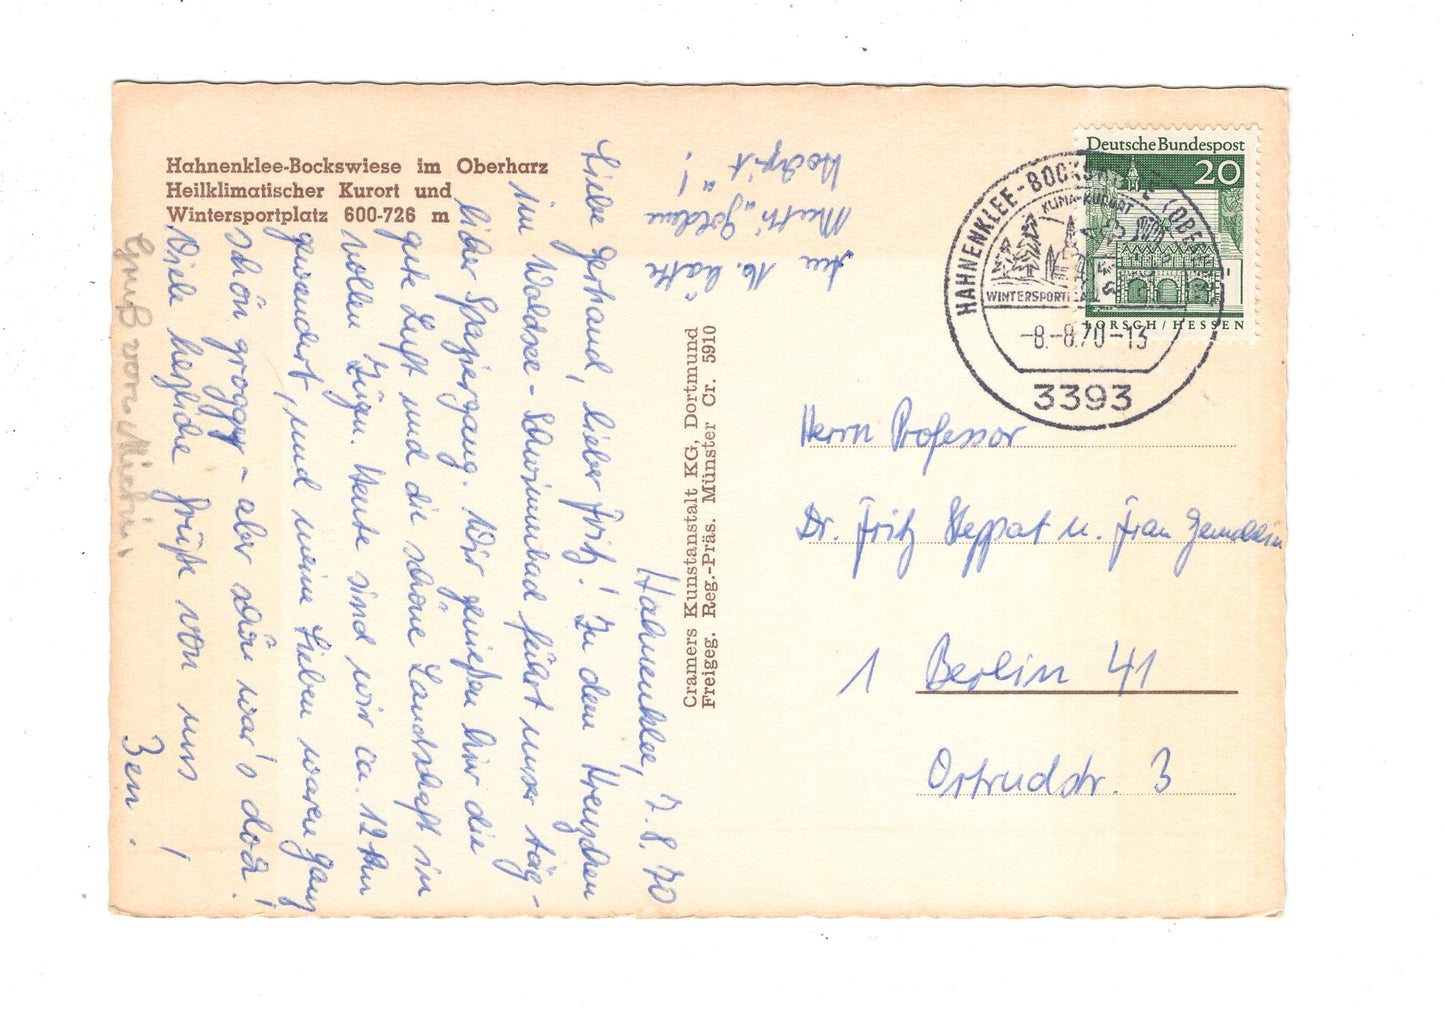 Hahnenklee-Bockswiese im Oberharz
Heilklimatischer Kurort und
Wintersportplatz 600-726 m
Hahnenklee, 7.8.70
Liebe Gerhaud, lieber Fritz! Zu dem
im Waldsee-Schwimmbad führt unser täg-
licher Spaziergang. Wir genießen hier die
gute Luft und die schöne Landschaft in
vollen Zügen. Heute sind wir ca. 12 km
gewandert, und meine Lieben waren ganz
schön groggy - aber schön war's doch!
Viele herzliche Grüße von uns
3en!
Gruß von
Am 16. hatte
Mutti "Goldene
Hochzeit"!
Cramers Kunstanstalt KG, Dortmund
Freigeg. Reg.-Präs. Münster Cr. 5910
Deutsche Bundespost
20
LORSCH/HESSEN
HAHNENKLEE-BOCKSWIESE (OBERHARZ)
KLIMA-KURORT
WINTERSPORTPLATZ
-8.-8.70-13
3393
Herrn Professor
Dr. Fritz Steppat u. Frau Gemahlin
1 Berlin 41
Ortrudstr. 3